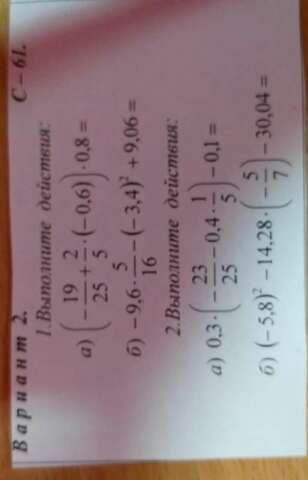 Вариант 2. С – 61.
1.Выполните действия:
а) (−19/25 + 2/5 · (−0,6)) · 0,8 =
б) −9,6 · 5/16 − (−3,4)² + 9,06 =
2.Выполните действия:
а) 0,3 · (−23/25 − 0,4 · 1/5) − 0,1 =
б) (−5,8)² − 14,28 · (−5/7) − 30,04 =